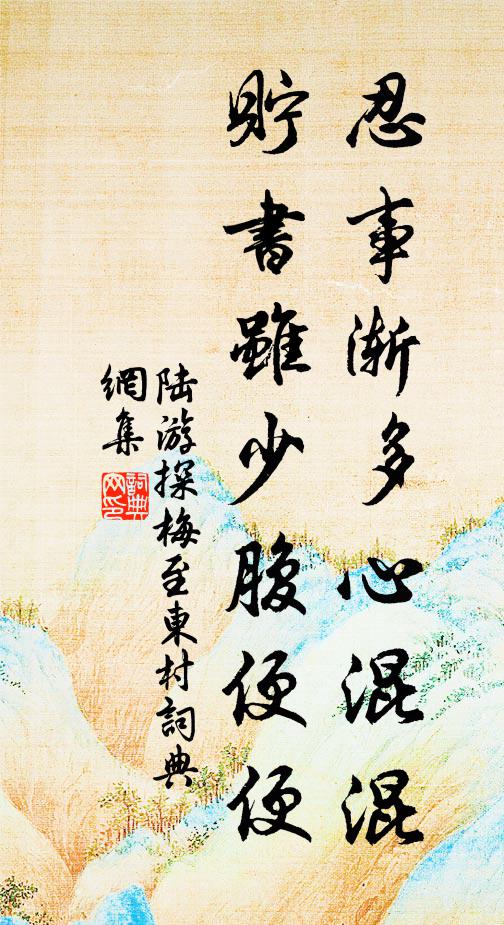 忍事漸多心混混
貯書雖少腹便便
陸游探梅至東村詞典
網集
詞典
网印